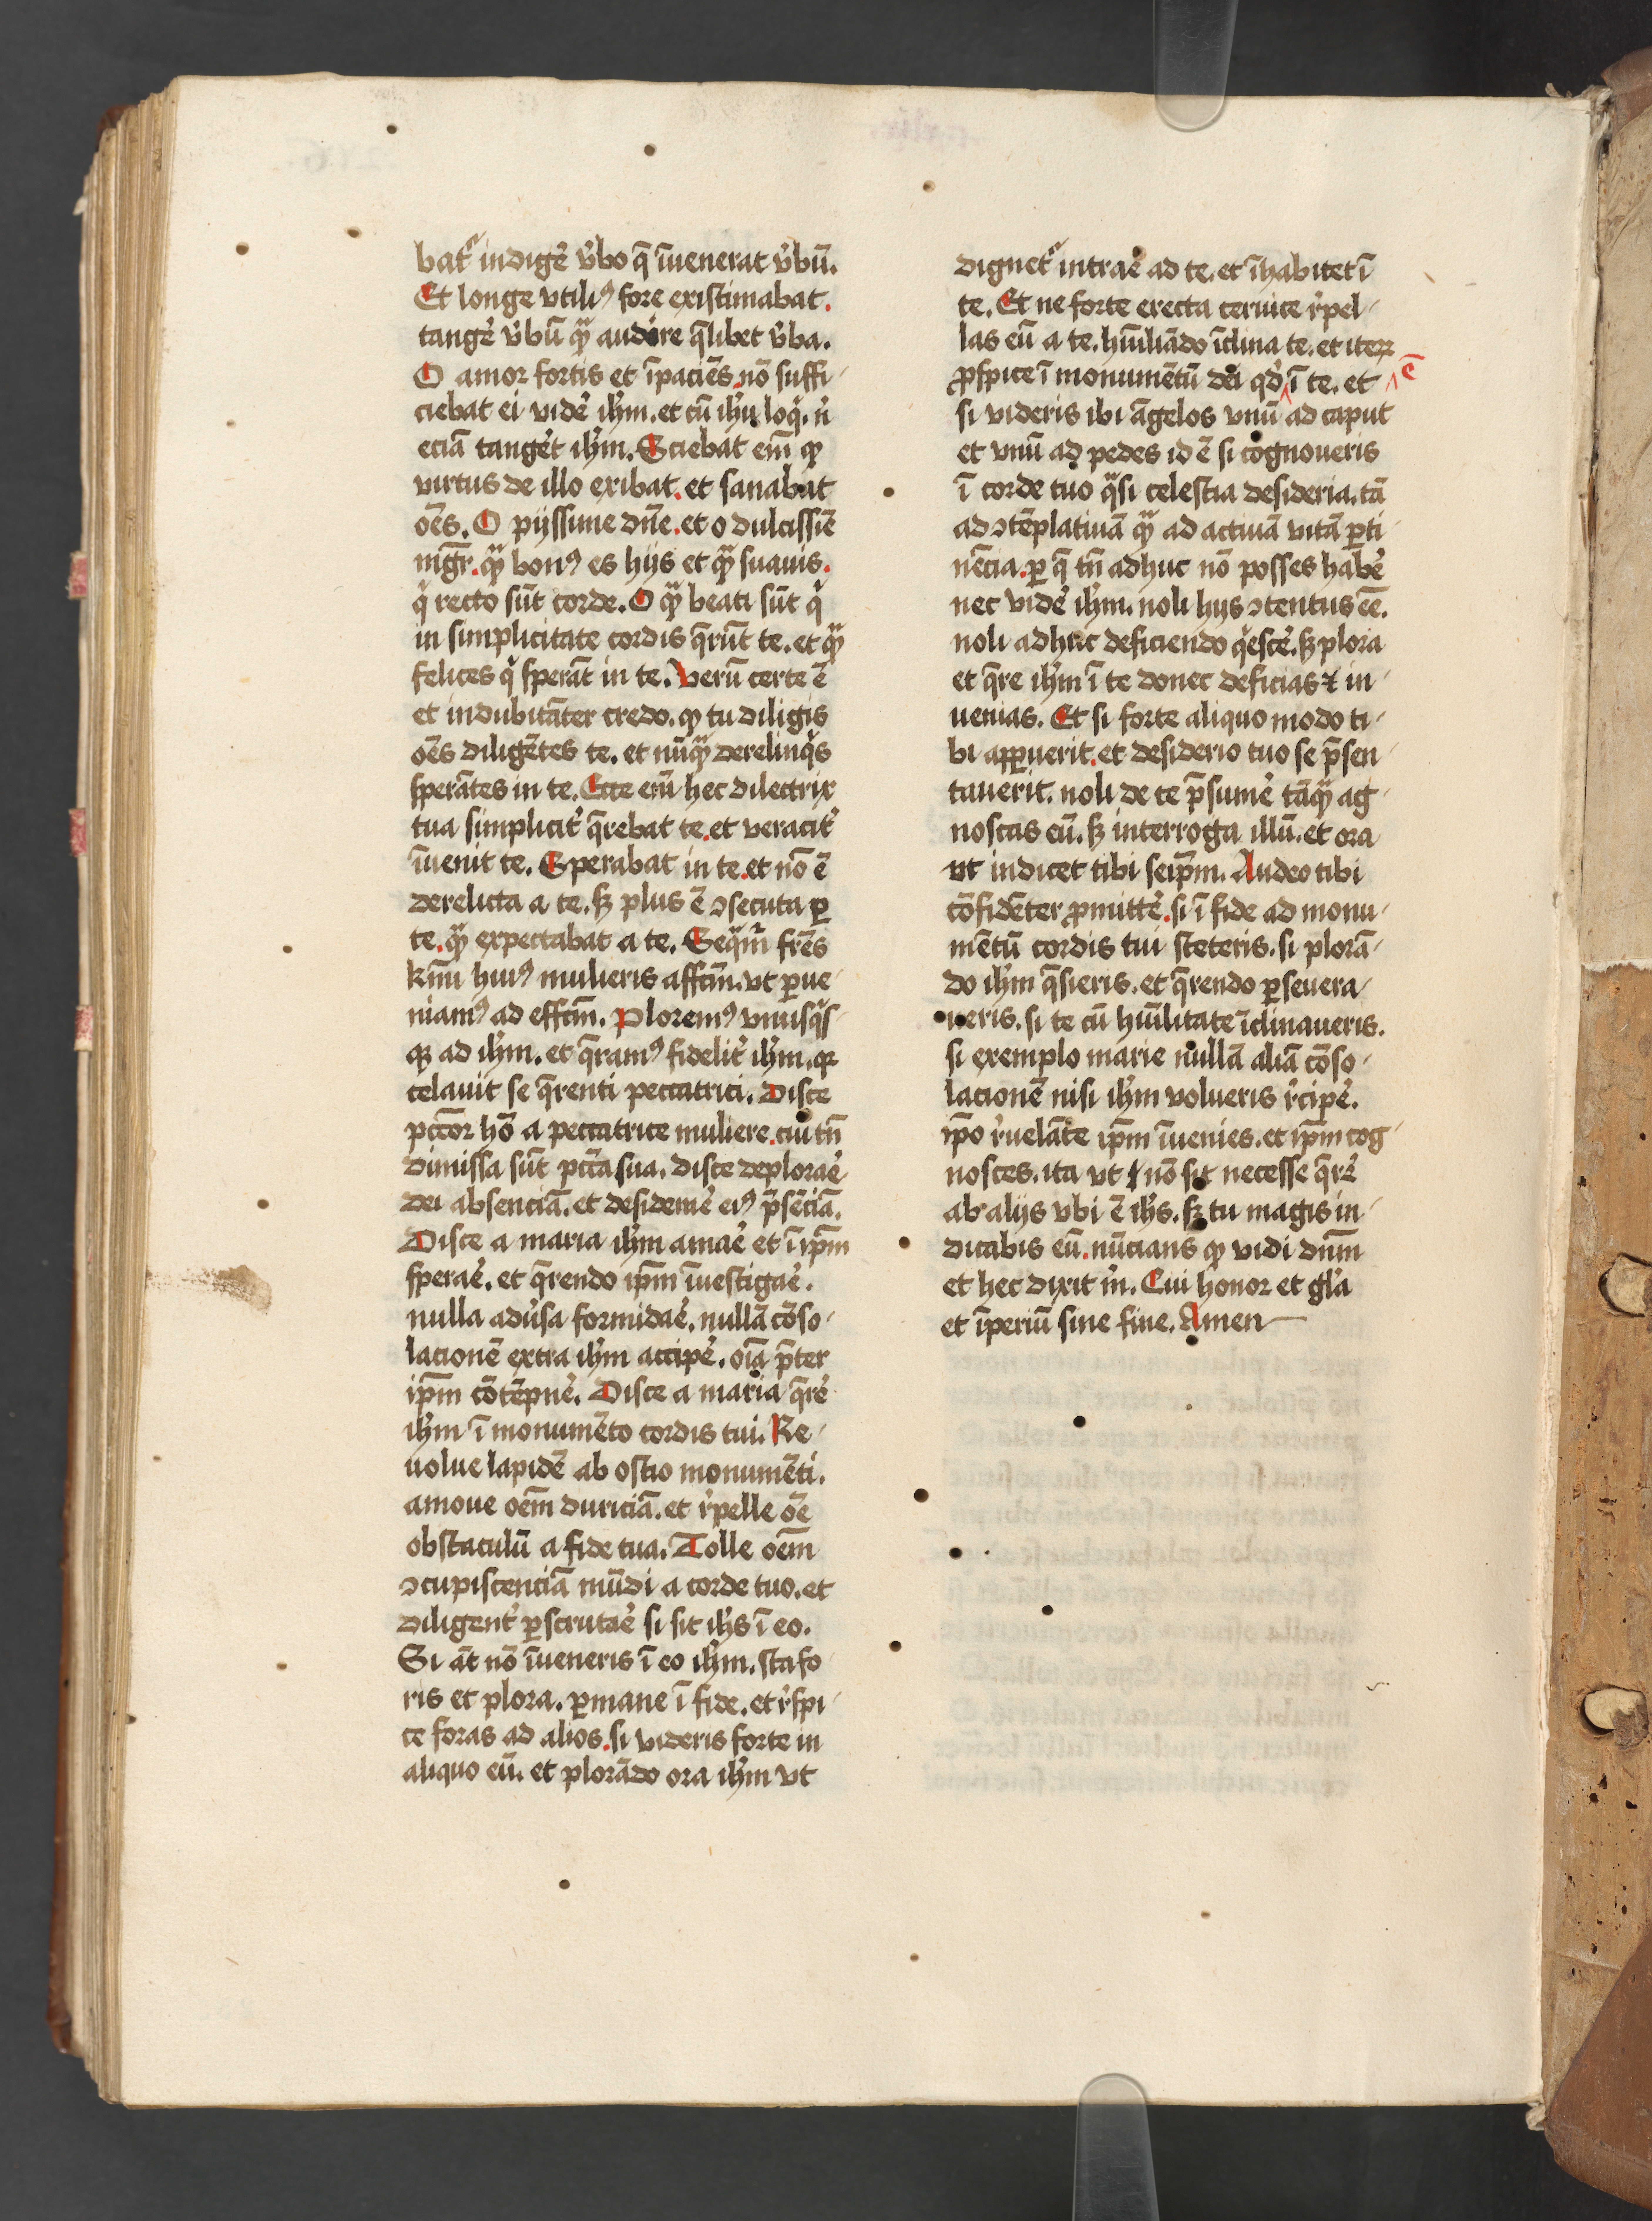 batᷣ indigẽ v̾bo q̄ ĩuenerat v̾bũ.
Et longe vtiliꝰ fore existimabat.
tange᷑ v̾bũ qᷓꝫ audire q̄libet v̾ba.
O amor fortis et ĩpaciẽs. nõ suffi-
ciebat ei vide᷑ ih̅m. et cũ ih̅u loq̇. n̾
eciã tanget᷑ ih̅m. Sciebat em̃ ꝙ
virtus de illo exibat. et sanabat
oẽs. O pijssime dñe. et o dulcissiẽ
mg̃r. qᷓꝫ bonꝰ es hijs et qᷓꝫ suauis.
q̇ recto sũt corde. O qᷓꝫ beati sũt q̇
in simplicitate cordis q̄rũt te. et qᷓꝫ
felices q̇ sperãt in te. Verũ certe ẽ
et indubitãter credo. ꝙ tu diligis
oẽs diligẽtes te. et nũqᷓꝫ derelinq̇s
sperãtes in te. Ecce em̃ hec dilectrix
tua simplicit᷑ q̄rebat te. et veracit᷑
ĩuenit te. Sperabat in te. et nõ ẽ
derelicta a te. sꝫ plus ẽ ↄsecuta ꝑ
te. qᷓꝫ expectabat a te. Seqᷓmᷣ fr̃es
km̃i huiꝰ mulieris affcm̃. vt ꝑue-
niamꝰ ad effcm̃. Ploremꝰ vnusq̇s-
qꝫ ad ih̅m. et q̄ramꝰ fidelit᷑ ih̅m. qꝛ
celauit se q̄renti peccatrici. Disce
pcc̃or hõ a peccatrice muliere. cui tñ
dimissa sũt pcc̃a sua. disce deplorae᷑
dei absenciã. et desiderae᷑ eiꝰ p̃sẽciã.
Disce a maria ih̅m amae᷑ et ĩ ip̃m
sperae᷑. et q̄rendo ip̃m ĩuestigae᷑.
nulla adu̾sa formidae᷑. nullã cõso-
lacionẽ extra ih̅m accipe᷑. oĩa p̃ter
ip̃m cõtẽpne᷑. Disce a maria q̄re᷑
ih̅m ĩ monumẽto cordis tui. Re-
uolue lapidẽ ab ostio monumẽti.
amoue oẽm duriciã. et r̾pelle oẽ
obstaculũ a fide tua. Tolle oẽm
ↄcupiscenciã mũdi a corde tuo. et
diligent᷑ ꝑscrutae᷑ si sit ih̅s ĩ eo.
Si aũt nõ ĩueneris ĩ eo ih̅m. sta fo-
ris et plora. ꝑmane ĩ fide. et r̾spi-
ce foras ad alios. si videris forte in
aliquo eũ. et plorãdo ora ih̅m vt
dignetᷣ intrae᷑ ad te. et ĩhabitet ĩ
te. Et ne forte erecta ceruice r̾pel-
las eũ a te. hũiliãdo ĩclina te. et iteꝝ
ꝓspice ĩ monumẽtũ dei qd̾ ĩ te. et ẽ
si videris ibi ãgelos vnũ ad caput
et vnũ ad pedes id ẽ si cognoueris
ĩ corde tuo qᷓsi celestia desideria. tã
ad ↄtẽplatiuã qᷓꝫ ad actiuã vitã ꝑti-
nẽcia. ꝑ q̄ tñ adhuc nõ posses habe᷑
nec vide᷑ ih̅m. noli hijs ↄtentus eẽ.
noli adhuc deficiendo q̇esce᷑. sꝫ plora
et q̄re ih̅m ĩ te donec deficias ⁊ in-
uenias. Et si forte aliquo modo ti-
bi apꝑuerit. et desiderio tuo se p̃sen-
tauerit. noli de te p̃sume᷑ tãqᷓꝫ ag-
noscas eũ. sꝫ interroga illũ. et ora
vt indicet tibi seip̃m. Audeo tibi
cõfidẽter ꝓmitte᷑. si ĩ fide ad monu-
mẽtũ cordis tui steteris. si plorã-
do ih̅m q̄sieris. et q̄rendo ꝑseuera-
ueris. si te cũ hũilitate ĩclinaueris.
si exemplo marie nullã aliã cõso-
lacionẽ nisi ih̅m volueris r̾cipe᷑.
ip̃o r̾uelãte ip̃m ĩuenies. et ip̃m cog-
nosces. ita vt nõ sit necesse q̄re᷑
ab alijs vbi ẽ ih̅s. sꝫ tu magis in-
dicabis eũ. nũcians ꝙ vidi dnm̃
et hec dixit m̾. Cui honor et gl̾a
et ĩperiũ sine fine. Amen